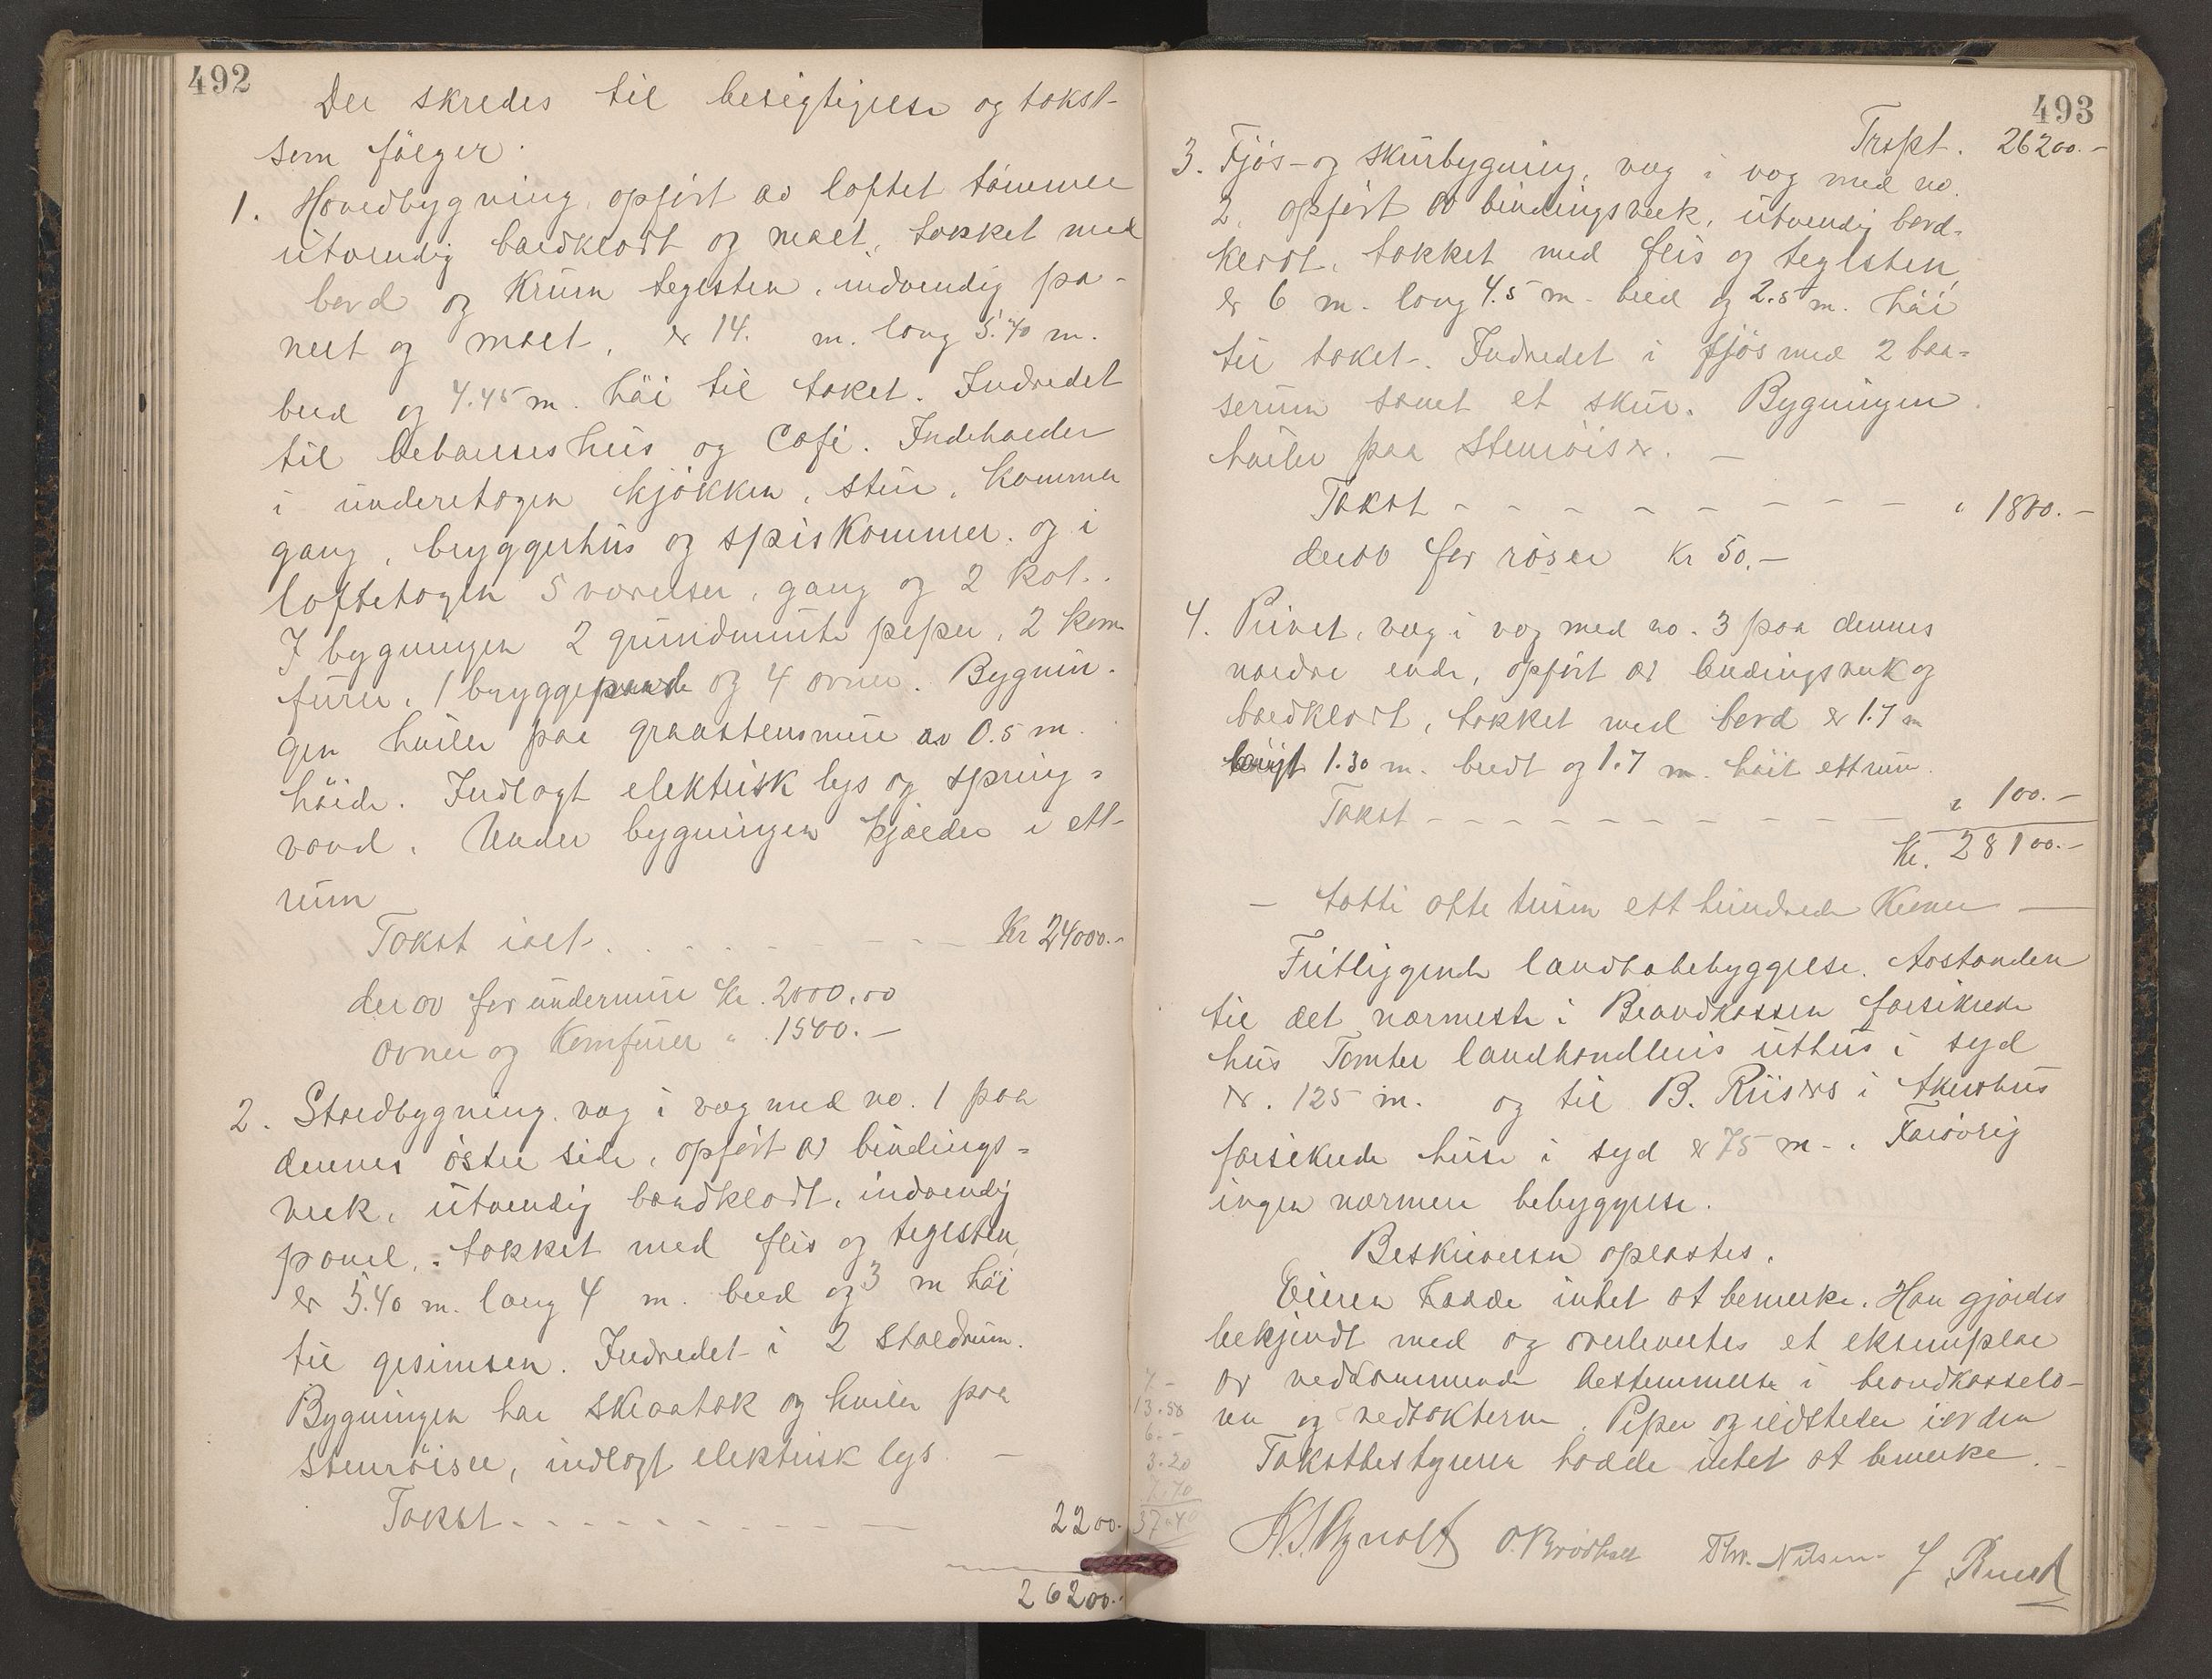 492
Der skredes til besigtigelse og takst
som følger.
1. Hovedbygning, opført av laftet tømmer
utvendig bordklædt og malt, tækket med
bord og krum teglsten, indvendig pa-
nelt og malt, er 14. m. lang 5.40 m.
bred og 4.45 m. høi til taket. Indredet
til bebouelseshus og Café. Indeholder
i underetagen kjøkken, stue, kammer
gang, bryggerhus og spiskammer. og i
loftetagen 5 værelser, gang og 2 kot.
I bygningen 2 grundmurte piper, 2 kom
furer, 1 bryggepande og 4 ovner. Bygnin-
gen hviler paa graastensmur av 0.5 m.
høide. Indlagt elektrisk lys og spring-
vand. Under bygningen kjælder i ett
rum
Takst ialt - - - - - - - Kr 24000.-
derav for undermur Kr. 2000.00
ovner og Komfurer " 1500.-
2. Staldbygning. væg i væg med no. 1 paa
dennes østre side, opført av bindings-
verk, utvendig bordklædt, indvendig
panel, tækket med flis og teglsten,
er 5.40 m. lang 4 m. bred og 3 m høi
til gesimsen. Indredet i 2 staldrum.
Bygningen har skraatak og hviler paa
stenrøiser, indlagt elektrisk lys. -
Takst - - - - - - - - - 2200.
26200.-
493
Trspt. 26200.-
3. Fjøs- og skurbygning, væg i væg med no.
2, opført av bindingsverk, utvendig bord-
klædt, tækket med flis og teglsten,
er 6 m. lang 4.5 m. bred og 2.5 m. høi
til taket. Indredet i fjøs med 2 baa-
serum samt et skur. Bygningen
hviler paa stenrøiser. -
Takst - - - - - - - - - " 1800.-
derav for røser Kr 50.-
4. Privet, væg i væg med no. 3 paa dennes
nordre ende, opført av bindingsverk og
bordklædt, tækket med bord er 1.7 m
langt 1.30 m. bredt og 1.7 m. høit ett rum.
Takst - - - - - - - - - " 100.-
Kr. 28100.-
- totti otte tusen ett hundrede Kroner -
Fritliggende landhabebyggelse. Avstanden
til det nærmeste i Brandkassen forsikrede
hus Tomter landhandleris uthus i syd
er. 125 m. og til B. Riisers i Akershus
forsikrede huse i syd er 75 m. Forøvrig
ingen nærmere bebyggelse.
Beskrivelsen oplæstes.
Eieren hadde intet at bemerke. Han gjordes
bekjendt med og overlevertes et eksemplar
av vedkommende bestemmelse i brandkasselo-
ven og vedtækterne. Piper og ildsteder iorden
Takstbestyrer hadde intet at bemerke. -
7.-
13.50
6.-
3.20
7.70
37.40
O. Brodholt Thv. Nilsen